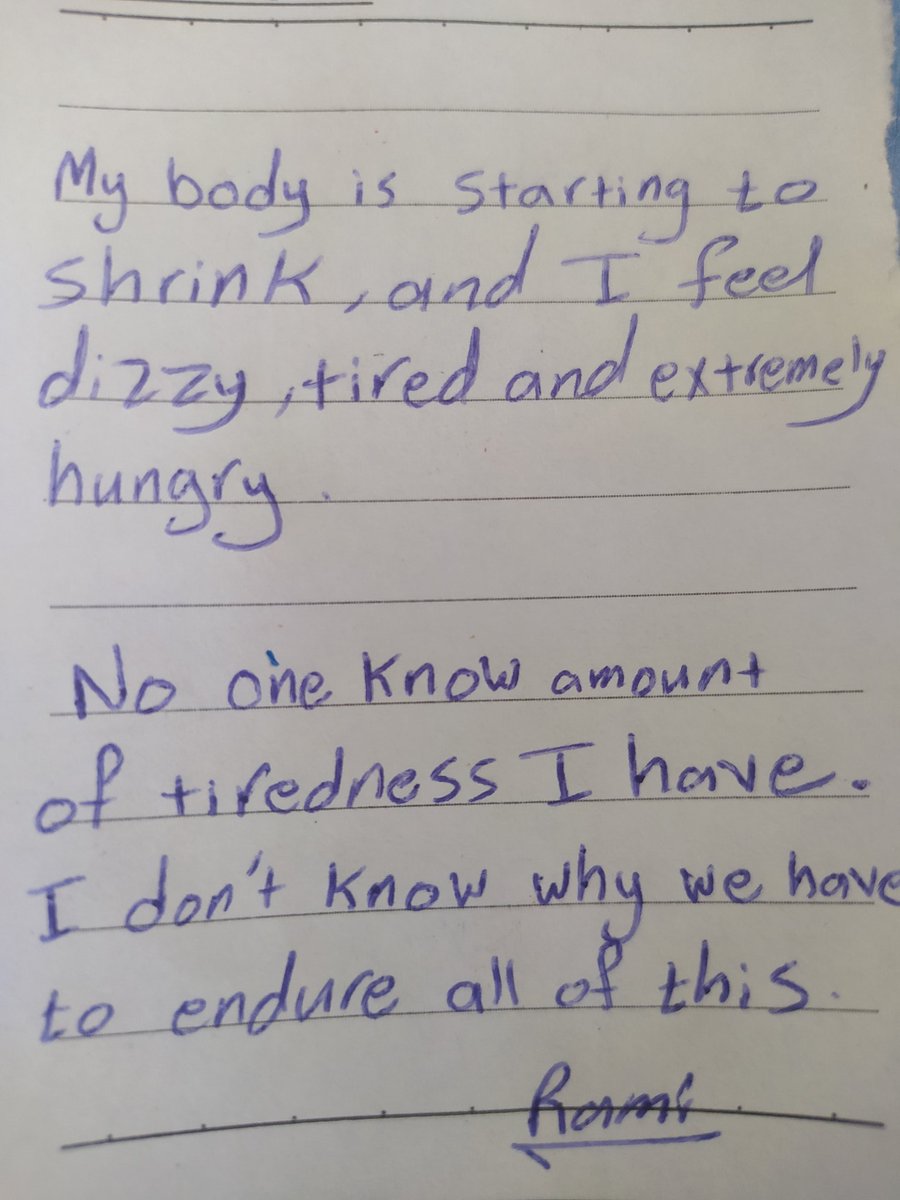 My body is starting to
shrink, and I feel
dizzy, tired and extremely
hungry.
No one know amount
of tiredness I have.
I don't know why we have
to endure all of this.
Rami